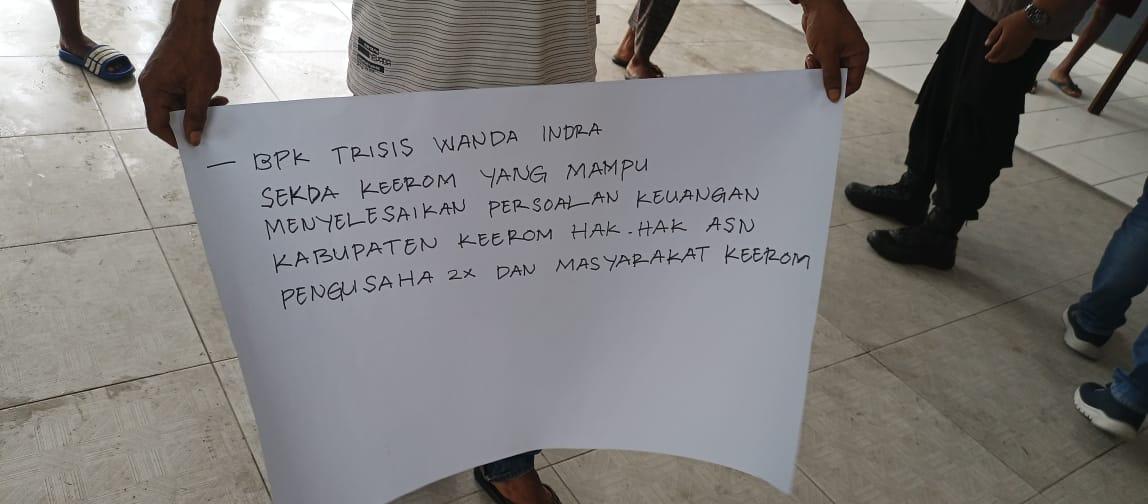 — BPK TRISIS WANDA INDRA
SEKDA KEEROM YANG MAMPU
MENYELESAIKAN PERSOALAN KEUANGAN
KABUPATEN KEEROM HAK-HAK ASN
PENGUSAHA 2X DAN MASYARAKAT KEEROM